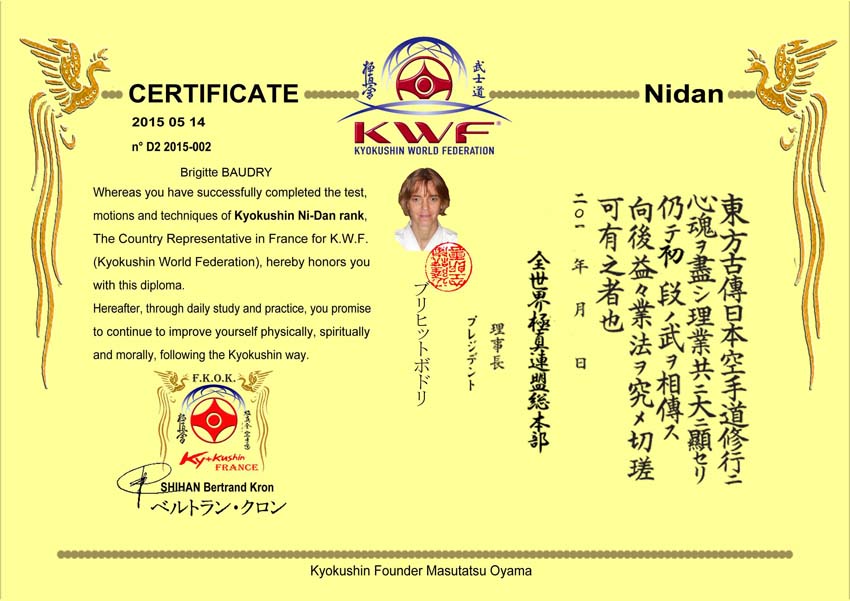 CERTIFICATE
Nidan
2015 05 14
n° D2 2015-002
極真会
武士道
KWF®
KYOKUSHIN WORLD FEDERATION
Brigitte BAUDRY
Whereas you have successfully completed the test,
motions and techniques of Kyokushin Ni-Dan rank,
The Country Representative in France for K.W.F.
(Kyokushin World Federation), hereby honors you
with this diploma.
Hereafter, through daily study and practice, you promise
to continue to improve yourself physically, spiritually
and morally, following the Kyokushin way.
東方古傳日本空手道修行ニ
心魂ヲ盡シ理業共ニ大ニ顯セリ
仍テ初段ノ武ヲ相傳ス
向後益々業法ヲ究メ切瑳
可有之者也
二〇一 年 月 日
全世界極真連盟総本部
理事長
プレジデント
ブリヒットボドリ
F.K.O.K.
極真会
Ky+kushin
FRANCE
SHIHAN Bertrand Kron
ベルトラン・クロン
Kyokushin Founder Masutatsu Oyama